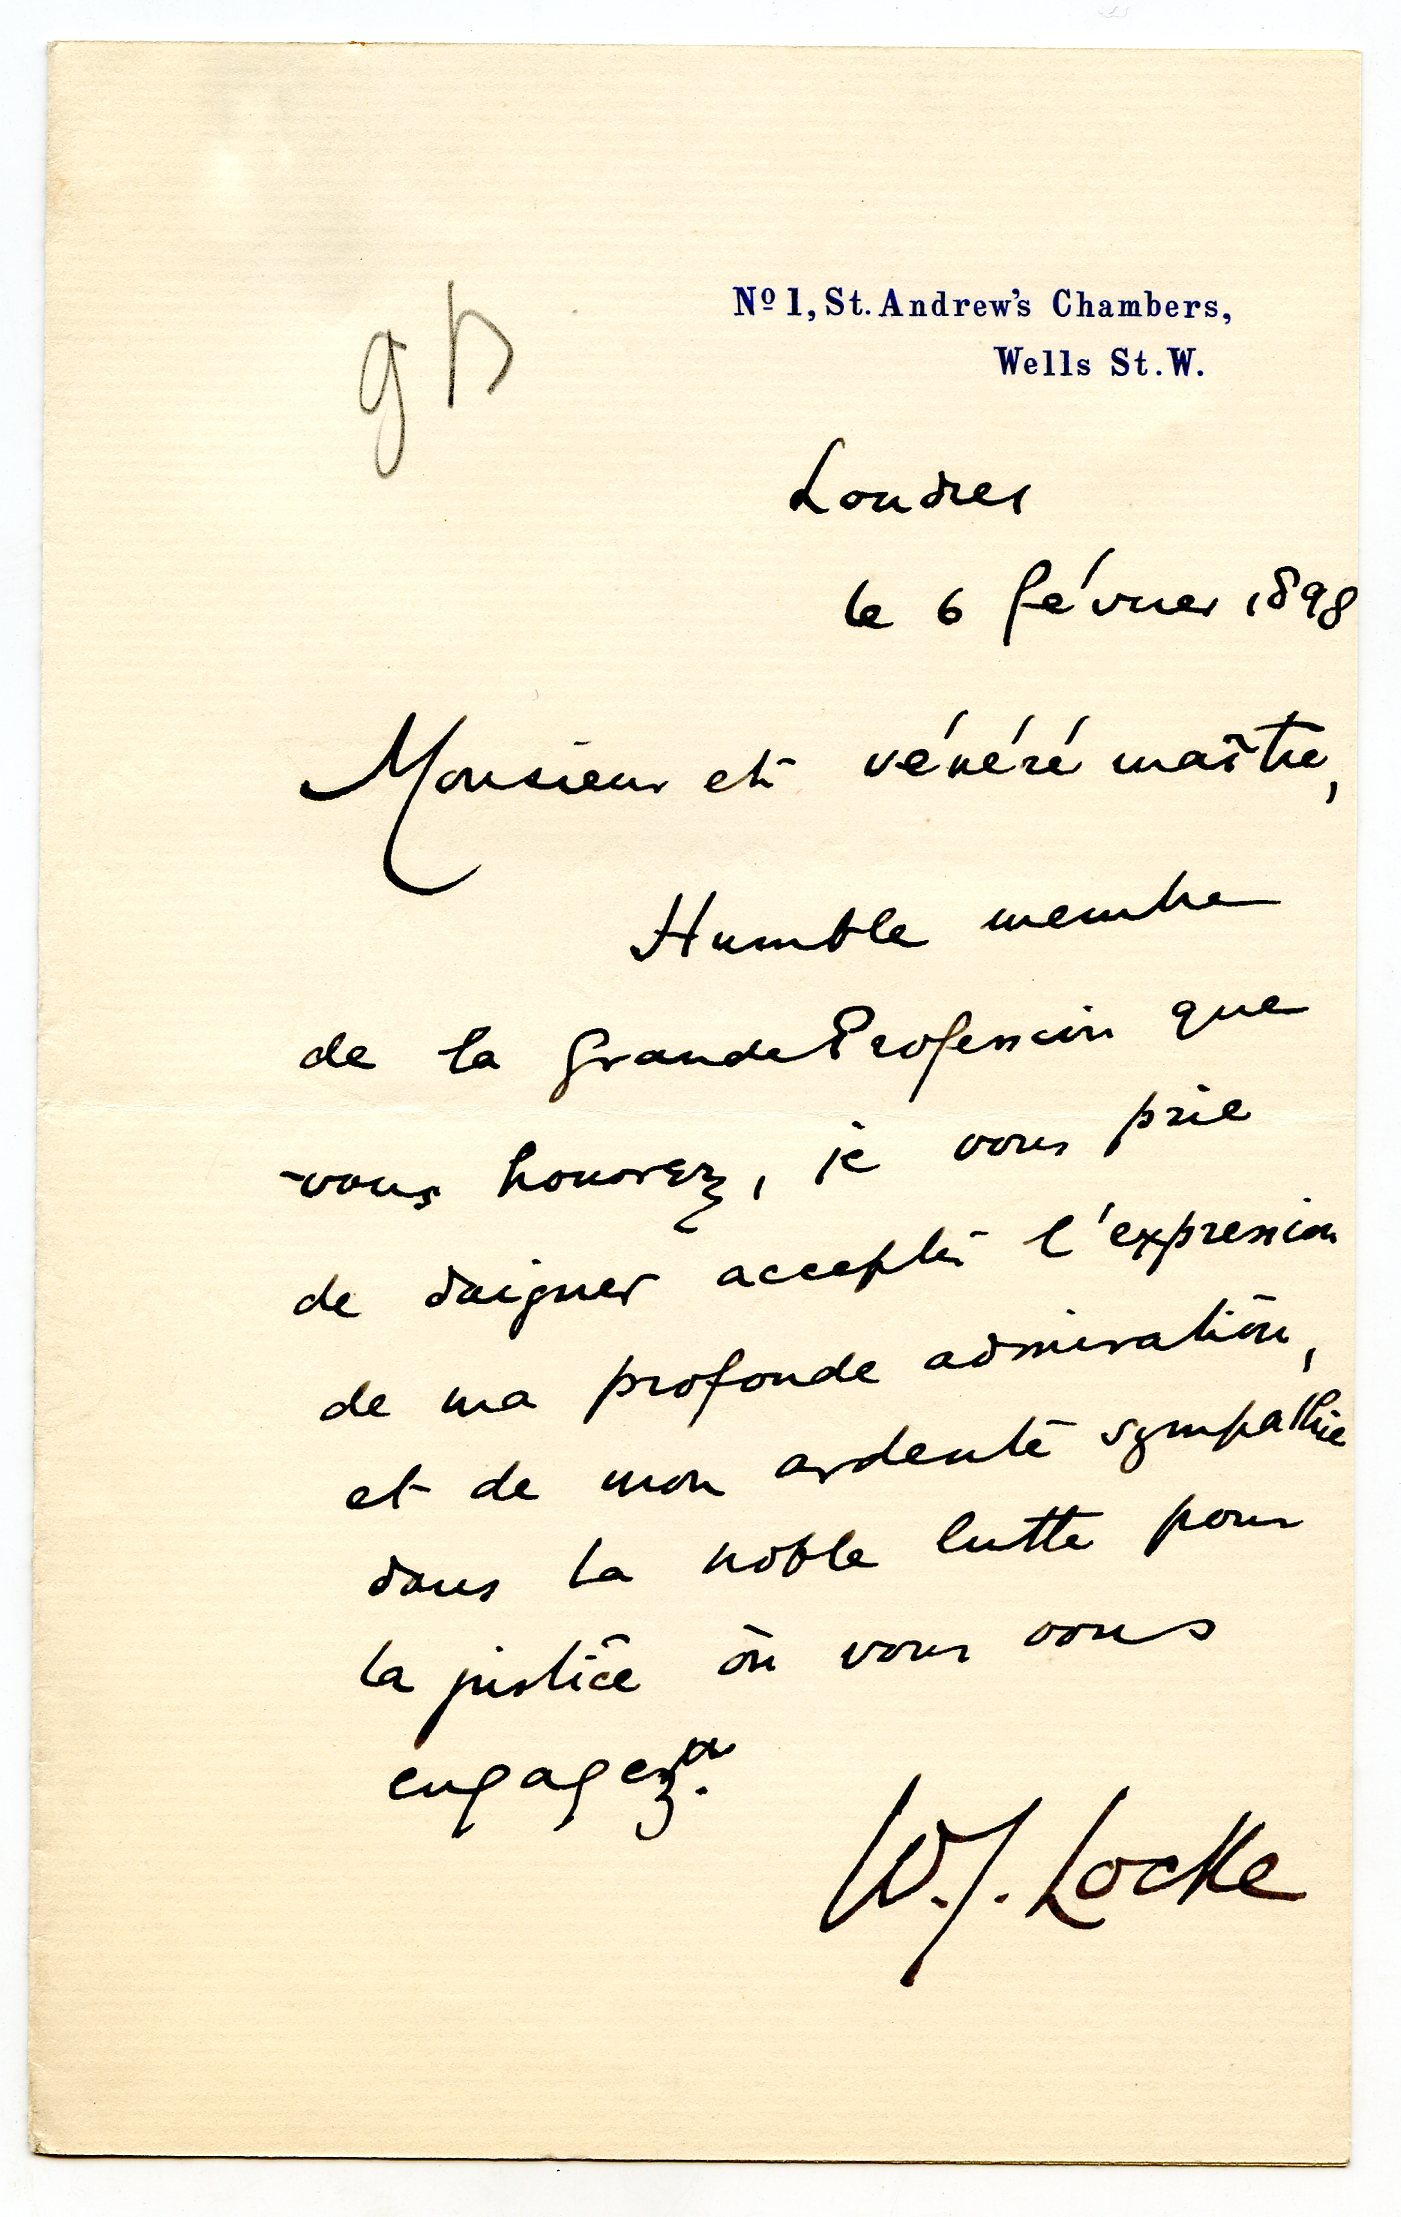 Nº 1, St. Andrew's Chambers,
Wells St. W.
Londres
le 6 février 1898
Monsieur et vénéré maître,
Humble membre
de la grande Profession que
vous honorez, je vous prie
de daigner accepter l'expression
de ma profonde admiration,
et de mon ardente sympathie
dans la noble lutte pour
la justice où vous vous
engagez.
W. J. Locke